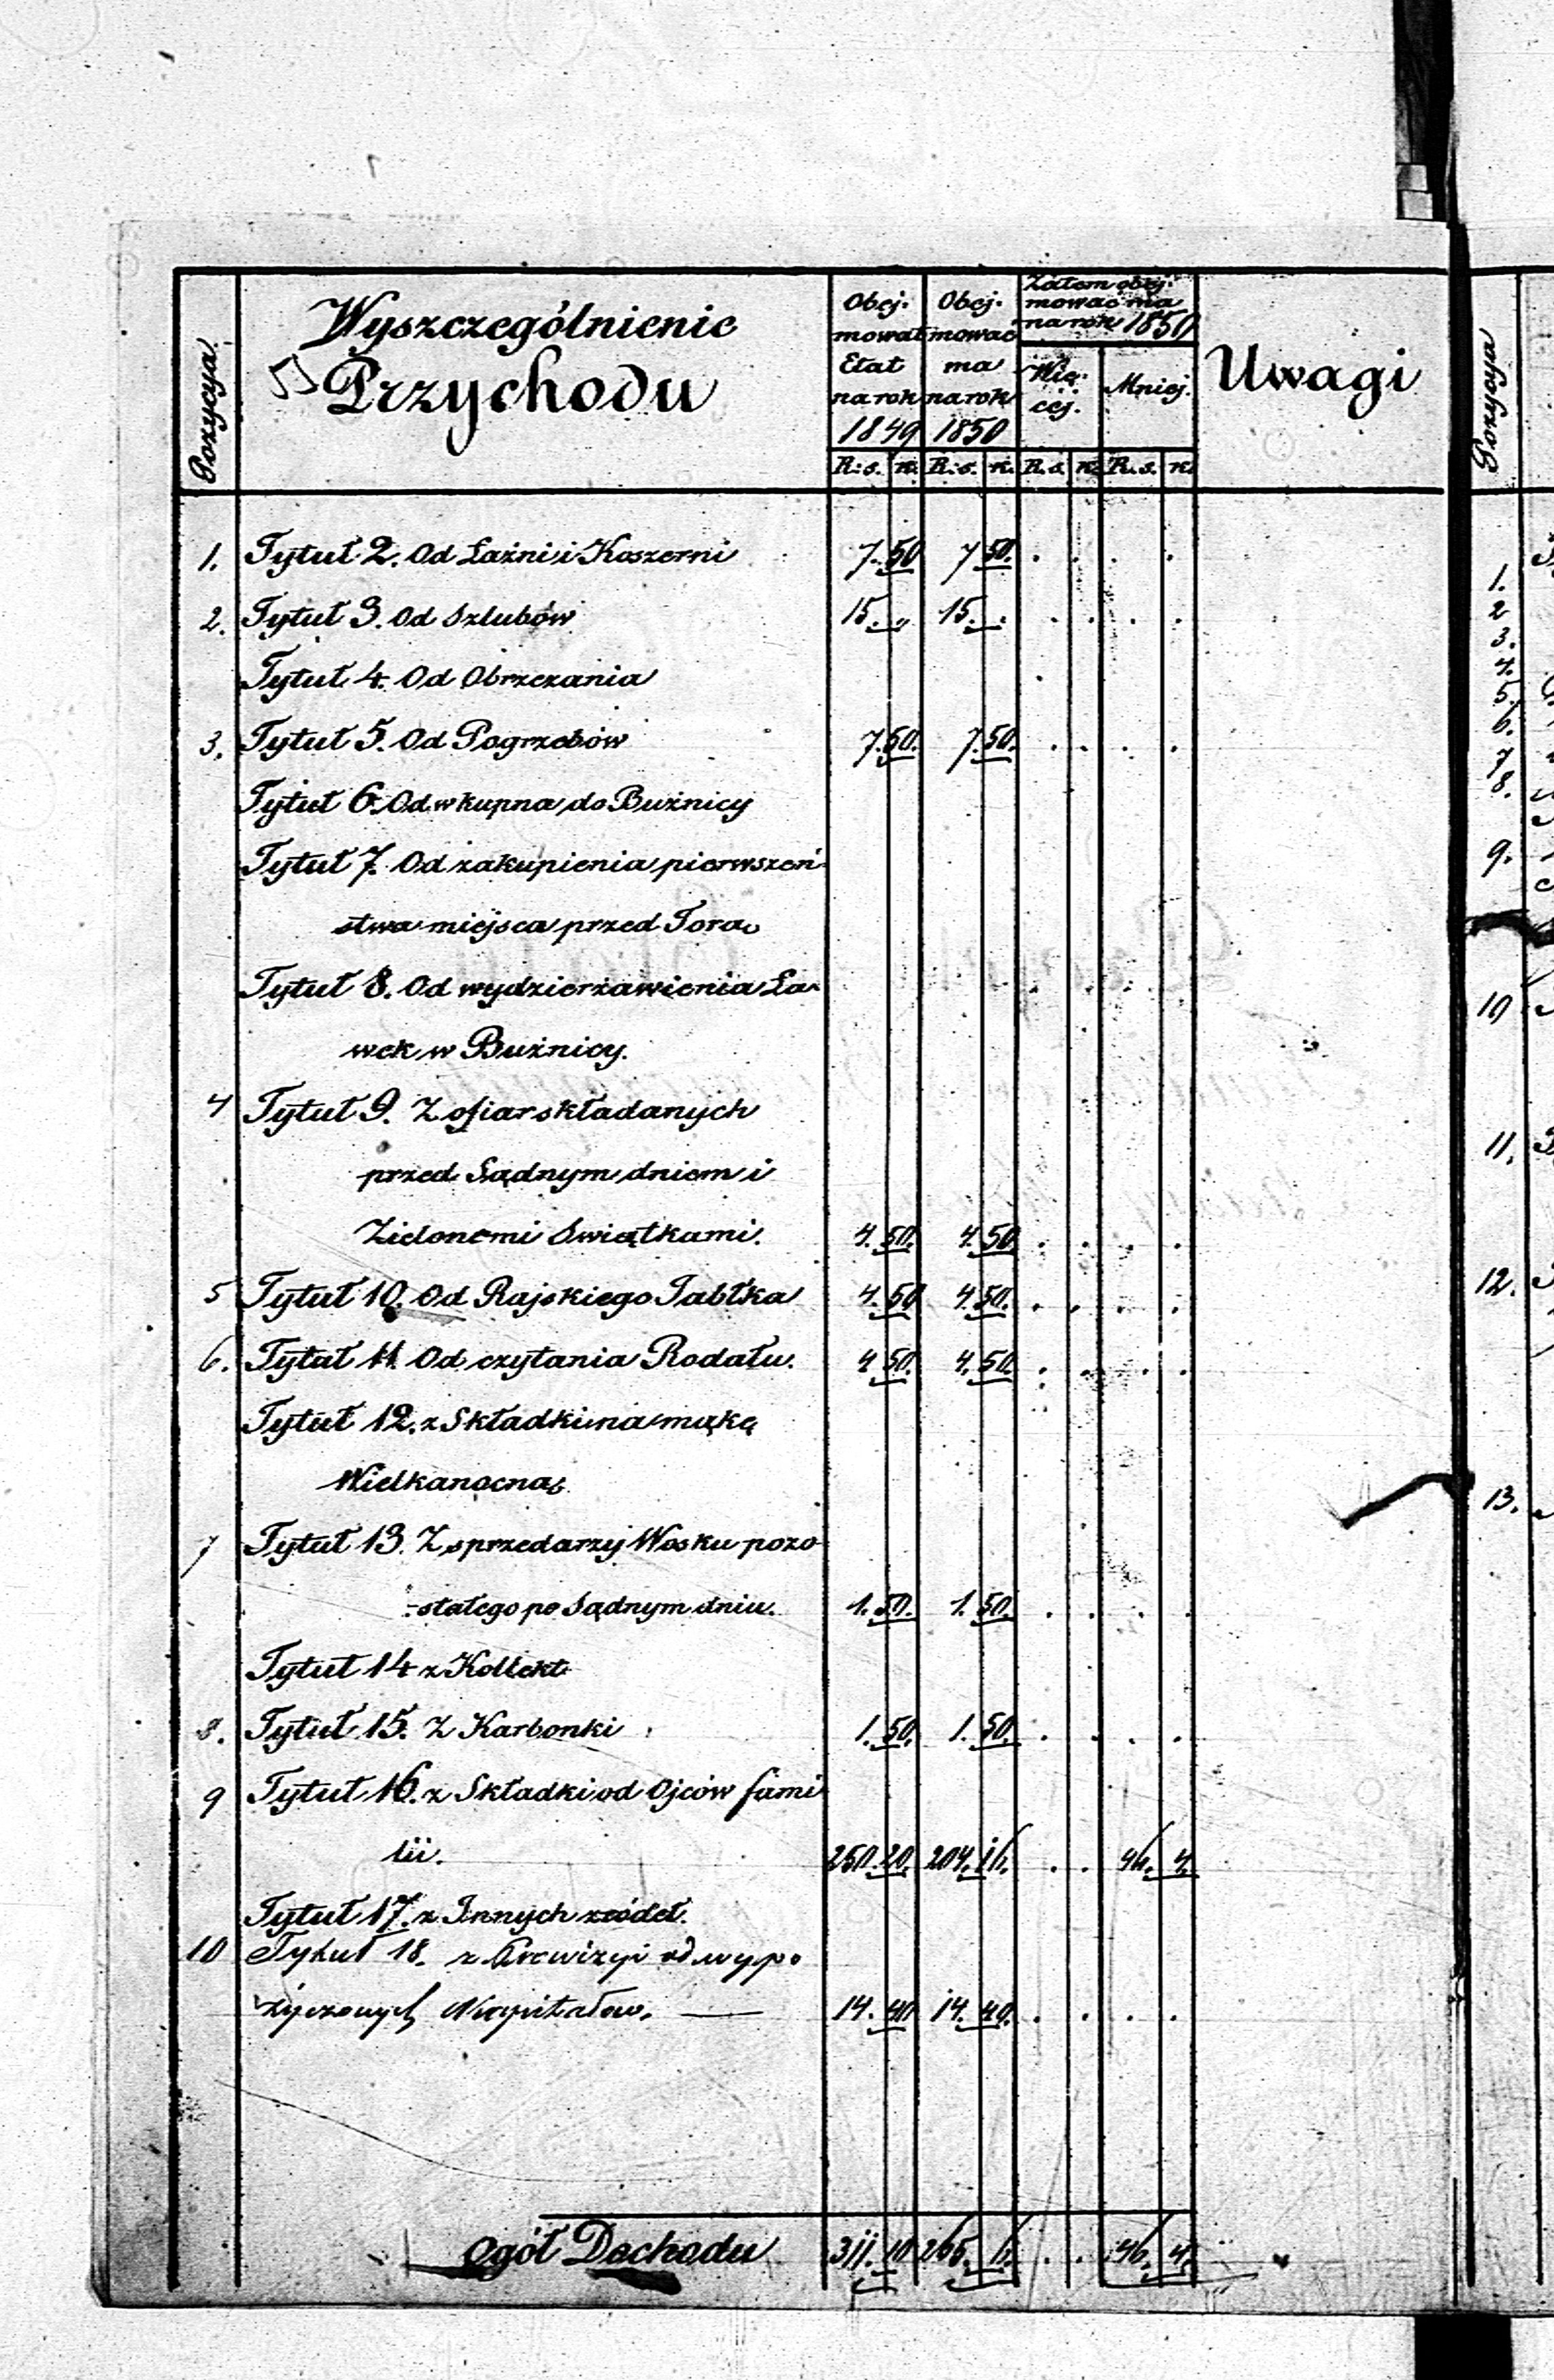 Pozycya
Wyszczególnienie
Przychodu
Obej-
mował
Etat
na rok
1849
Obej-
mować
ma
na rok
1850
Zatem obej-
mować ma
na rok 1850
Wię-
cej.
Mniej.
Uwagi
R:s. k. R:s. k. R.s. k. R.s. k.
1. Tytuł 2. Od Łaźni i Koszerni 7. 50 7 50.
2. Tytuł 3. Od Szlubów 15. „ 15.
Tytuł 4. Od Obrzezania
3. Tytuł 5. Od Pogrzebów 7. 50. 7. 50.
Tytuł 6. Od wkupna do Bużnicy
Tytuł 7. Od zakupienia pierwszeń-
stwa miejsca przed Torą
Tytuł 8. Od wydzierżawienia Ła-
wek w Bużnicy.
4 Tytuł 9. Z ofiar składanych
przed Sądnym dniem i
Zielonemi Swiątkami. 4. 50. 4. 50.
5 Tytuł 10. Od Rajskiego Jabłka 4. 50 4. 50.
6. Tytuł 11. Od czytania Rodału. 4. 50. 4. 50.
Tytuł 12. z Składki na mąkę
Wielkanocną.
7 Tytuł 13. Z sprzedarzy Wosku pozo-
stałego po Sądnym dniu. 1. 50. 1. 50.
Tytuł 14 z Kollekt
8. Tytuł 15. Z Karbonki 1. 50. 1. 50.
9 Tytuł 16. z Składki od Ojców fami-
lii. 250. 20. 204. 16. 46. 4.
Tytuł 17. z Innych zródeł.
10 Tytuł 18. z Prowizyi od wypo
życzonych Kapitałów. 14. 40 14. 40.
Ogół Dochodu 311. 10 265. 6. 46. 4.
Pozycya
1.
2
3.
4.
5.
6.
7
8.
9.
10
11.
12.
13.